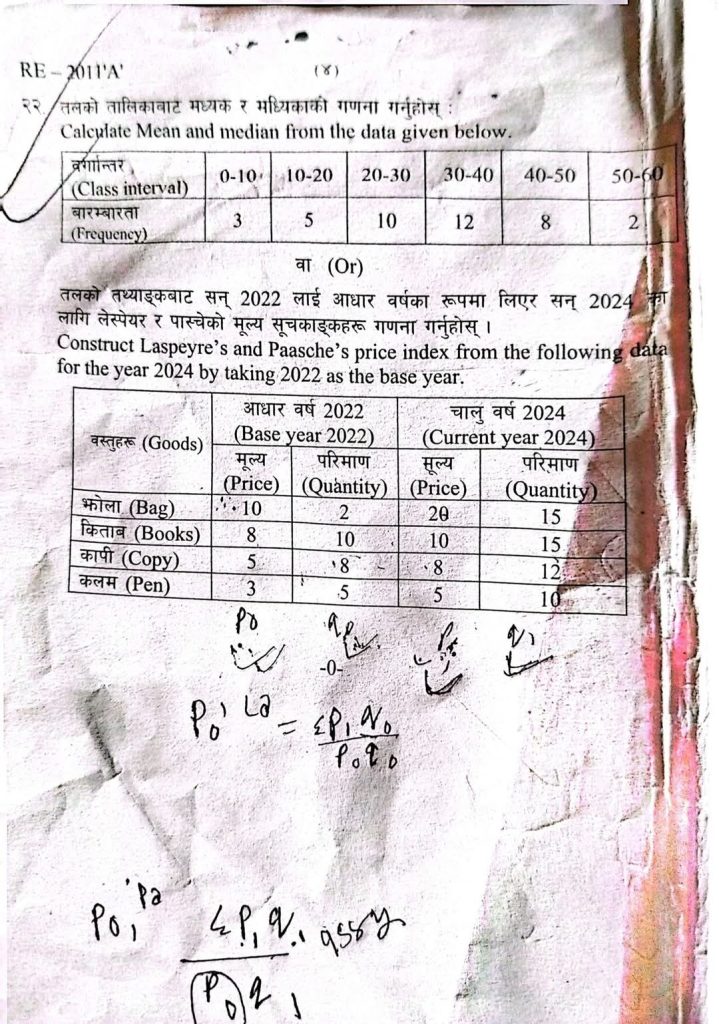 RE – 2011'A' (४)
२२. तलको तालिकाबाट मध्यक र मध्यिकाको गणना गर्नुहोस् :
Calculate Mean and median from the data given below.
वर्गान्तर (Class interval) 0-10 10-20 20-30 30-40 40-50 50-60
बारम्बारता (Frequency) 3 5 10 12 8 2
वा (Or)
तलको तथ्याङ्कबाट सन् 2022 लाई आधार वर्षका रूपमा लिएर सन् 2024 का
लागि लेस्पेयर र पास्चेको मूल्य सूचकाङ्कहरू गणना गर्नुहोस् ।
Construct Laspeyre's and Paasche's price index from the following data
for the year 2024 by taking 2022 as the base year.
वस्तुहरू (Goods) आधार वर्ष 2022 (Base year 2022) चालु वर्ष 2024 (Current year 2024)
मूल्य (Price) परिमाण (Quantity) मूल्य (Price) परिमाण (Quantity)
झोला (Bag) 10 2 20 15
किताब (Books) 8 10 10 15
कापी (Copy) 5 8 8 12
कलम (Pen) 3 5 5 10
P0 q1
-0-
P0' La = ΣP1 q0
P0 q0
P01 Pa ΣP1 q1
P0 q1